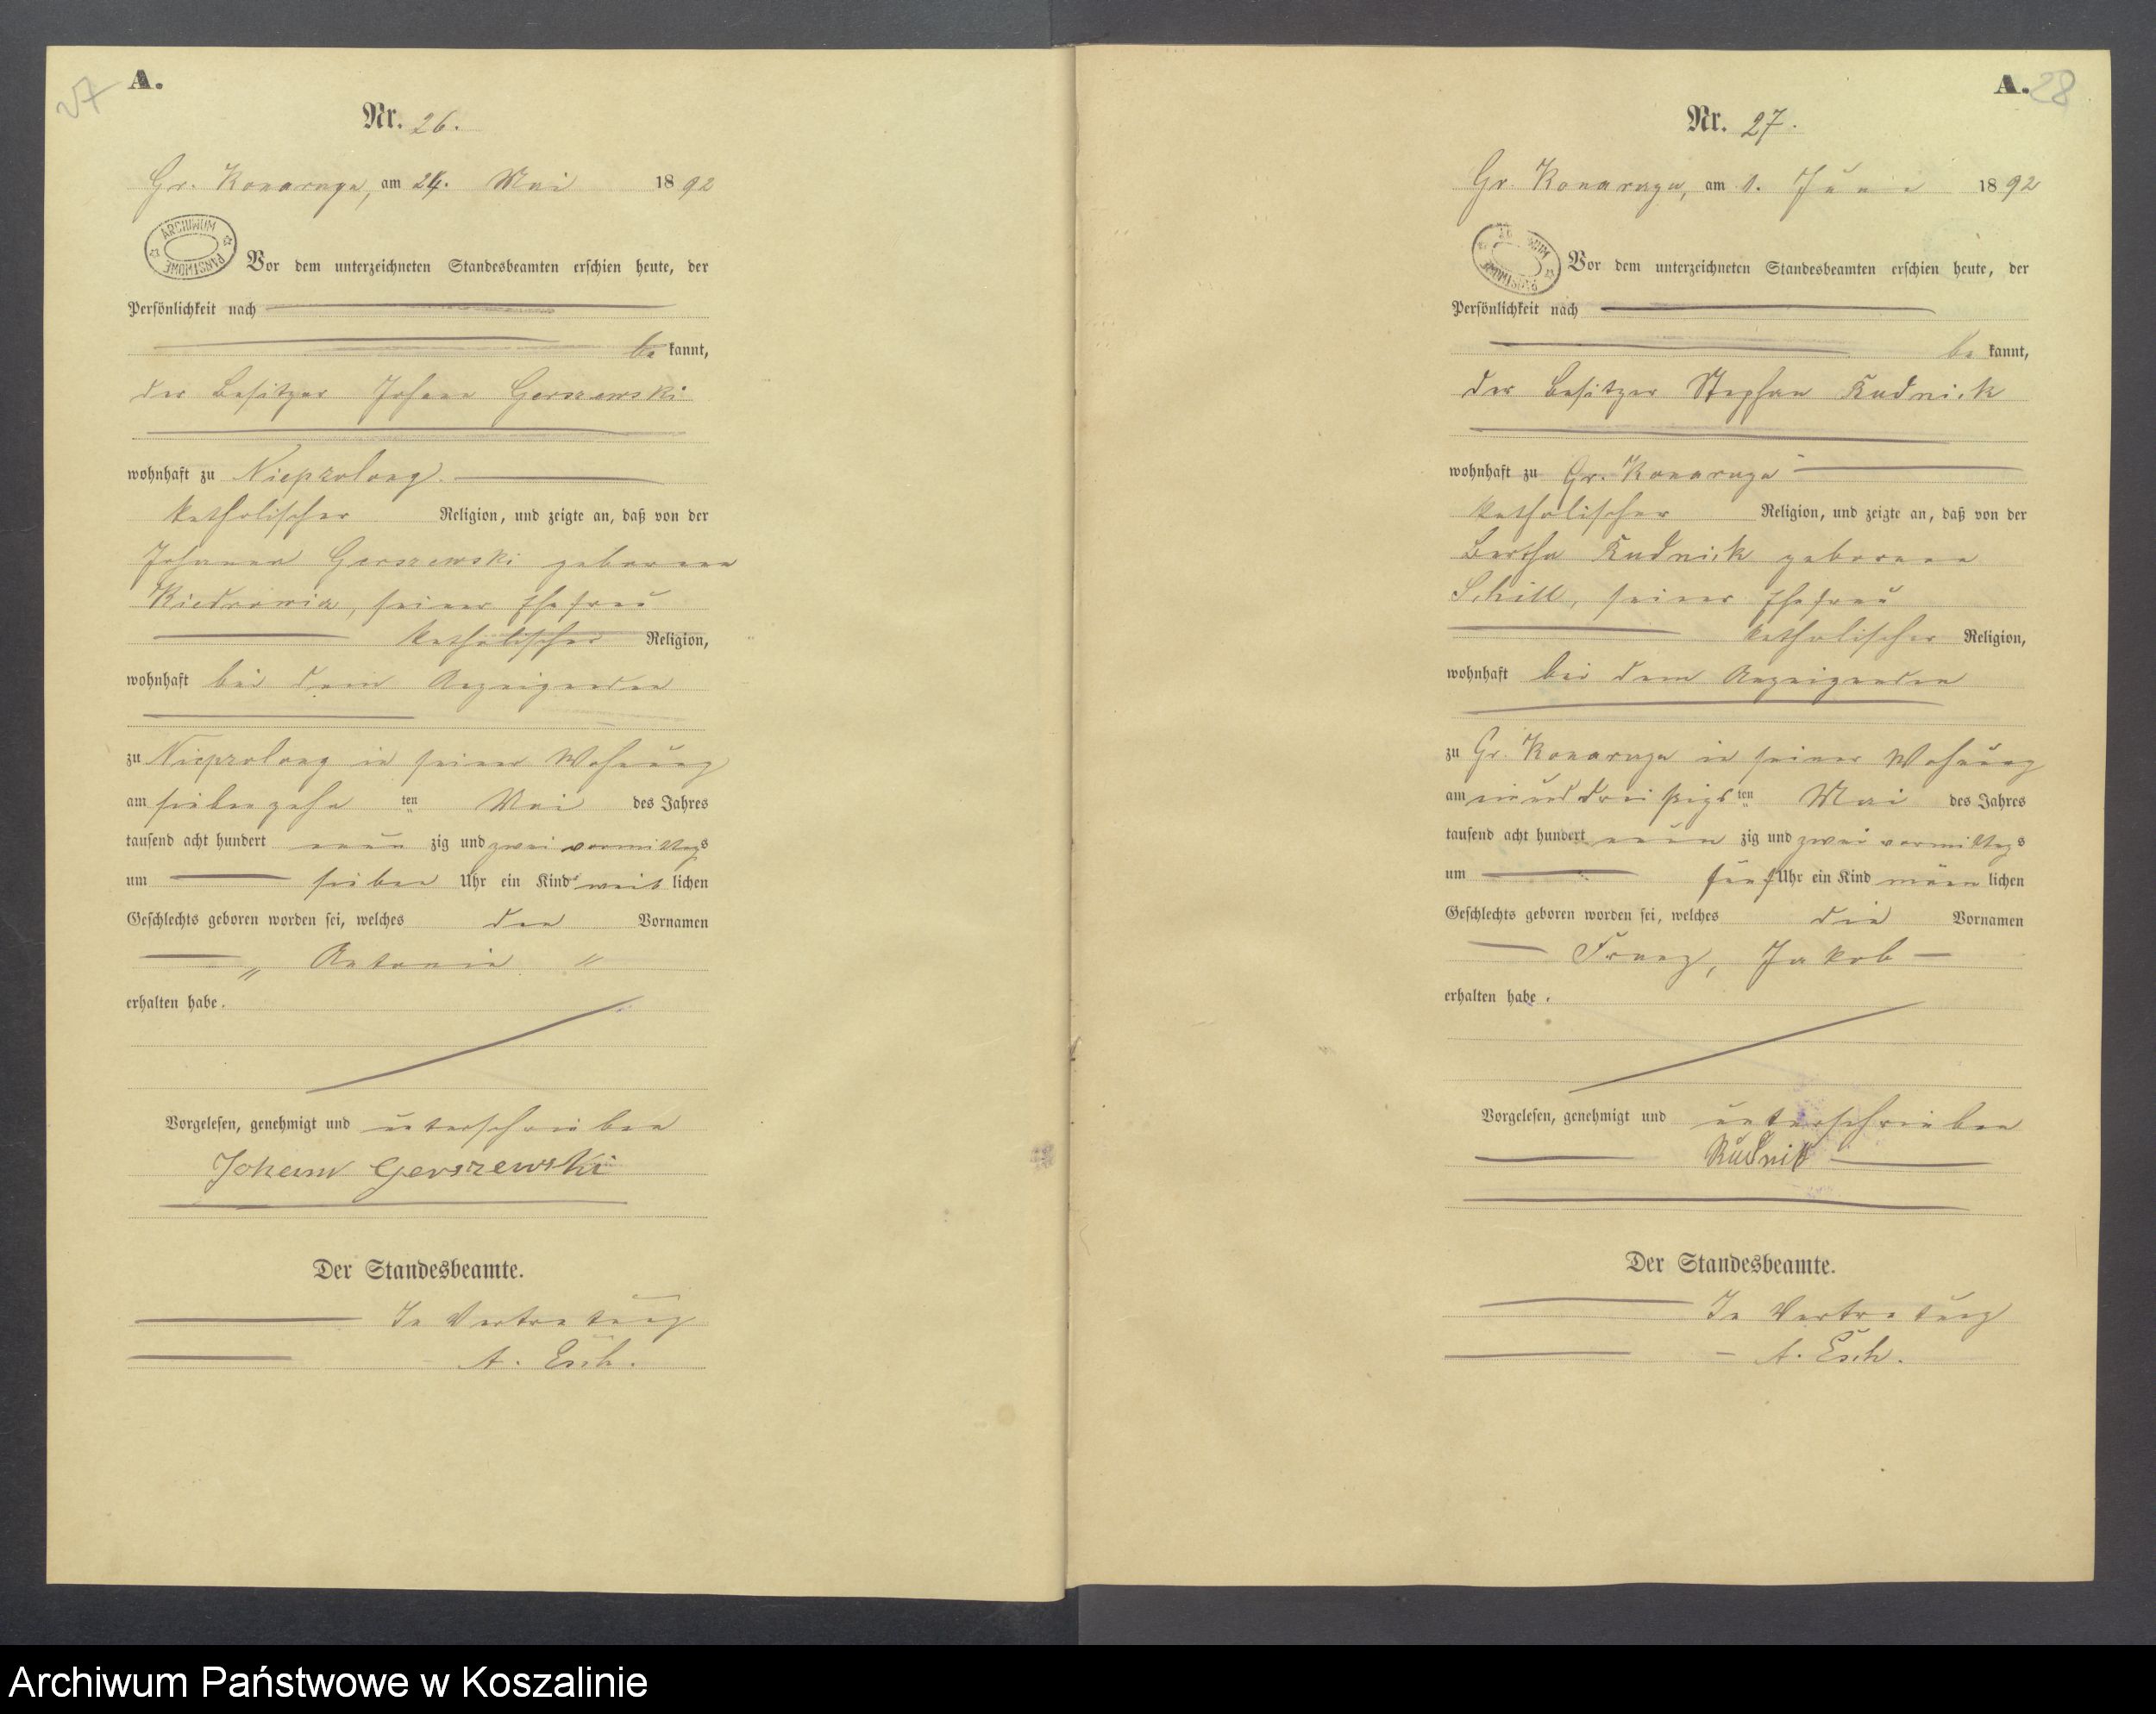 27
A.
Nr. 26.
Gr. Konarzyn, am 24. Mai 1892
ARCHIWUM PAŃSTWOWE
Vor dem unterzeichneten Standesbeamten erschien heute, der
Persönlichkeit nach
be kannt,
der Besitzer Johann Gerszewski
wohnhaft zu Nieprzlong.
katholischer Religion, und zeigte an, daß von der
Johanna Gerszewski geborenen
seiner Ehefrau
katholischer Religion,
wohnhaft bei dem Anzeigenden
zu Nieprzlong in seiner Wohnung
am siebenzehn ten Mai des Jahres
tausend acht hundert neun zig und zwei vormittags
um sieben Uhr ein Kind weib lichen
Geschlechts geboren worden sei, welches den Vornamen
„ Antonie "
erhalten habe.
Vorgelesen, genehmigt und unterschrieben
Johann Gerszewski
Der Standesbeamte.
In Vertretung
A. Esch.
A. 28
Nr. 27.
Gr. Konarzyn, am 1. Juni 1892
ARCHIWUM PAŃSTWOWE
Vor dem unterzeichneten Standesbeamten erschien heute, der
Persönlichkeit nach
be kannt,
der Besitzer Stephan Rudnick
wohnhaft zu Gr. Konarzyn
katholischer Religion, und zeigte an, daß von der
Bertha Rudnick geborenen
Schill, seiner Ehefrau
katholischer Religion,
wohnhaft bei dem Anzeigenden
zu Gr. Konarzyn in seiner Wohnung
am einunddreißigs ten Mai des Jahres
tausend acht hundert neun zig und zwei vormittags
um fünf Uhr ein Kind männ lichen
Geschlechts geboren worden sei, welches die Vornamen
Franz, Jakob
erhalten habe.
Vorgelesen, genehmigt und unterschrieben
Rudnik
Der Standesbeamte.
In Vertretung
A. Esch.
Archiwum Państwowe w Koszalinie